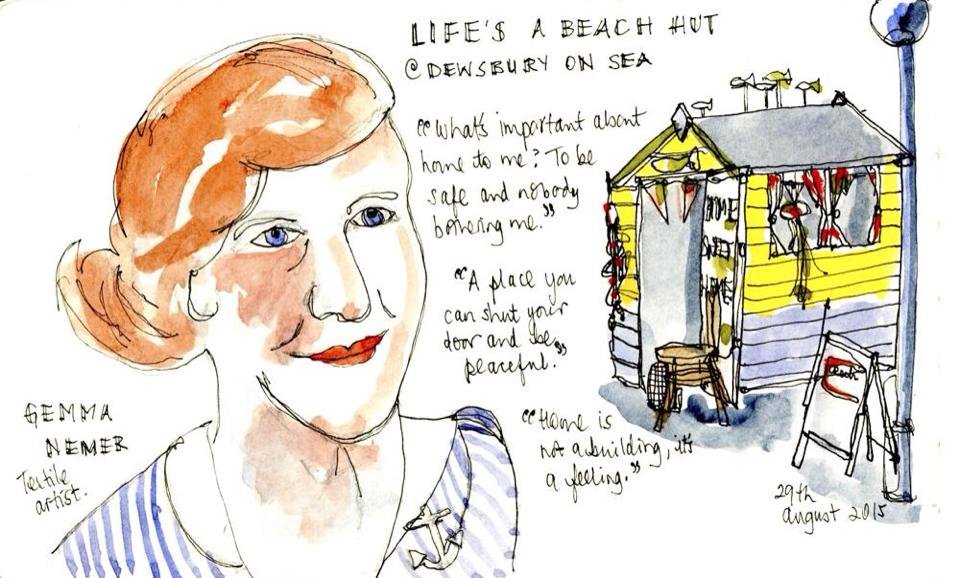 LIFE'S A BEACH HUT
@DEWSBURY ON SEA
"What's important about
home to me? To be
safe and nobody
bothering me."
"A place you
can shut your
door and be
peaceful."
"Home is
not a building, it's
a feeling."
GEMMA
NEMER
Textile
artist.
HOME
SWEET
HOME
29th
august 2015